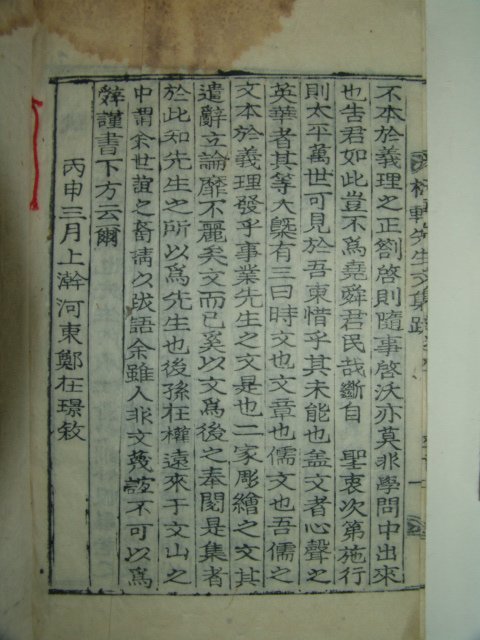 不本於義理之正劄啓則隨事啓沃亦莫非學問中出來
也告君如此豈不爲堯舜君民哉斷自 聖衷次第施行
則太平萬世可見於吾東惜乎其未能也盖文者心聲之
英華者其等大槩有三曰時文也文章也儒文也吾儒之
文本於義理發乎事業先生之文是也二家彫繪之文其
遣辭立論靡不麗矣文而已奚以文爲後之奉閱是集者
於此知先生之所以爲先生也後孫在權遠來于文山之
中謂余世誼之裔請以跋語余雖人非文蔑證不可以爲
辭謹書下方云爾
丙申三月上澣河東鄭在璟敘
軒先生文集跋